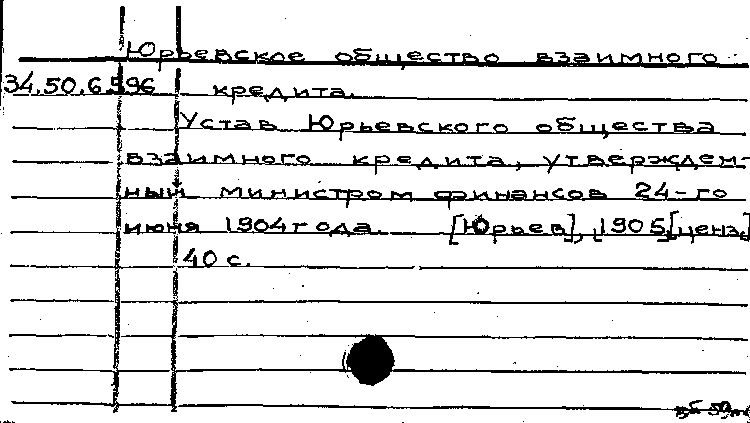 Юрьевское общество взаимного
34.50.6.596 кредита.
Устав Юрьевского общества
взаимного кредита, утвержден-
ный министром финансов 24-го
июня 1904 года. [Юрьев], 1905 [ценз.]
40 с.